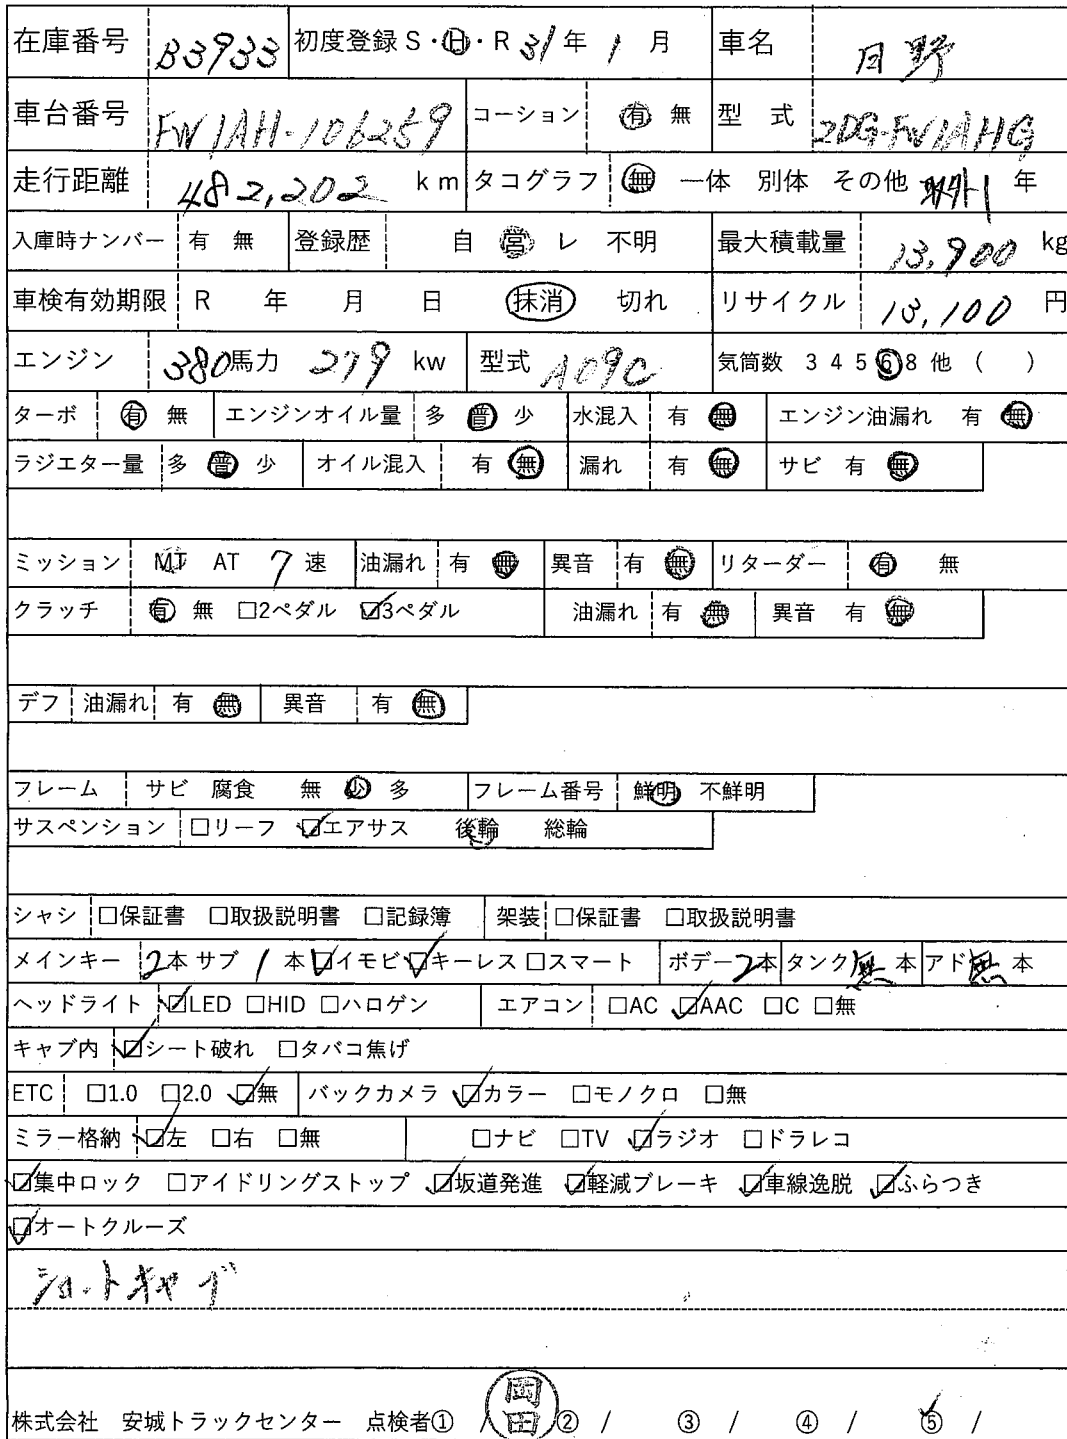 在庫番号 B3933 初度登録 S・H・R 31年 1月 車名 日野
車台番号 FW1AH-106259 コーション 有 無 型 式 2DG-FW1AHG
走行距離 482,202 km タコグラフ 無 一体 別体 その他 年
入庫時ナンバー 有 無 登録歴 自 営 レ 不明 最大積載量 13,900 kg
車検有効期限 R 年 月 日 抹消 切れ リサイクル 13,100 円
エンジン 380馬力 279 kw 型式 A09C 気筒数 3 4 5 6 8 他 ( )
ターボ 有 無 エンジンオイル量 多 普 少 水混入 有 無 エンジン油漏れ 有 無
ラジエター量 多 普 少 オイル混入 有 無 漏れ 有 無 サビ 有 無
ミッション MT AT 7速 油漏れ 有 無 異音 有 無 リターダー 有 無
クラッチ 有 無 □2ペダル ☑3ペダル 油漏れ 有 無 異音 有 無
デフ 油漏れ 有 無 異音 有 無
フレーム サビ 腐食 無 少 多 フレーム番号 鮮明 不鮮明
サスペンション □リーフ ☑エアサス 後輪 総輪
シャシ □保証書 □取扱説明書 □記録簿 架装 □保証書 □取扱説明書
メインキー 2本 サブ 1本 ☑イモビ ☑キーレス □スマート ボデー2本 タンク無本 アド無本
ヘッドライト ☑LED □HID □ハロゲン エアコン □AC ☑AAC □C □無
キャブ内 ☑シート破れ □タバコ焦げ
ETC □1.0 □2.0 ☑無 バックカメラ ☑カラー □モノクロ □無
ミラー格納 ☑左 □右 □無 □ナビ □TV ☑ラジオ □ドラレコ
☑集中ロック □アイドリングストップ ☑坂道発進 ☑軽減ブレーキ ☑車線逸脱 ☑ふらつき
☑オートクルーズ
ショートキャブ
株式会社 安城トラックセンター 点検者① / 岡田 ② / ③ / ④ / ⑤ /